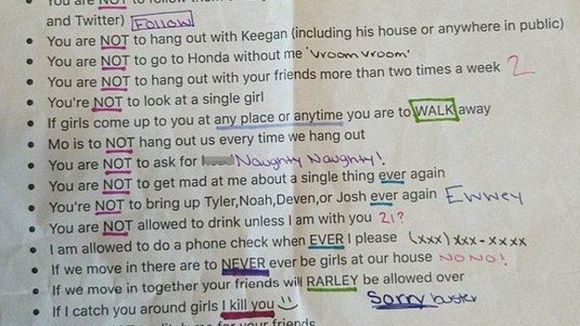 You are NOT to follow them
and Twitter) FOLLOW
• You are NOT to hang out with Keegan (including his house or anywhere in public)
• You are NOT to go to Honda without me 'Vroom Vroom'
• You are NOT to hang out with your friends more than two times a week 2
• You're NOT to look at a single girl
• If girls come up to you at any place or anytime you are to WALK away
• Mo is to NOT hang out us every time we hang out
• You are NOT to ask for Naughty Naughty!
• You are NOT to get mad at me about a single thing ever again
• You're NOT to bring up Tyler,Noah,Deven,or Josh ever again Ewwey
• You are NOT allowed to drink unless I am with you 21?
• I am allowed to do a phone check when EVER I please (xxx)xxx-xxxx
• If we move in there are to NEVER ever be girls at our house NO NO!
• If we move in together your friends will RARLEY be allowed over
• If I catch you around girls I kill you Sorry buster
your friends